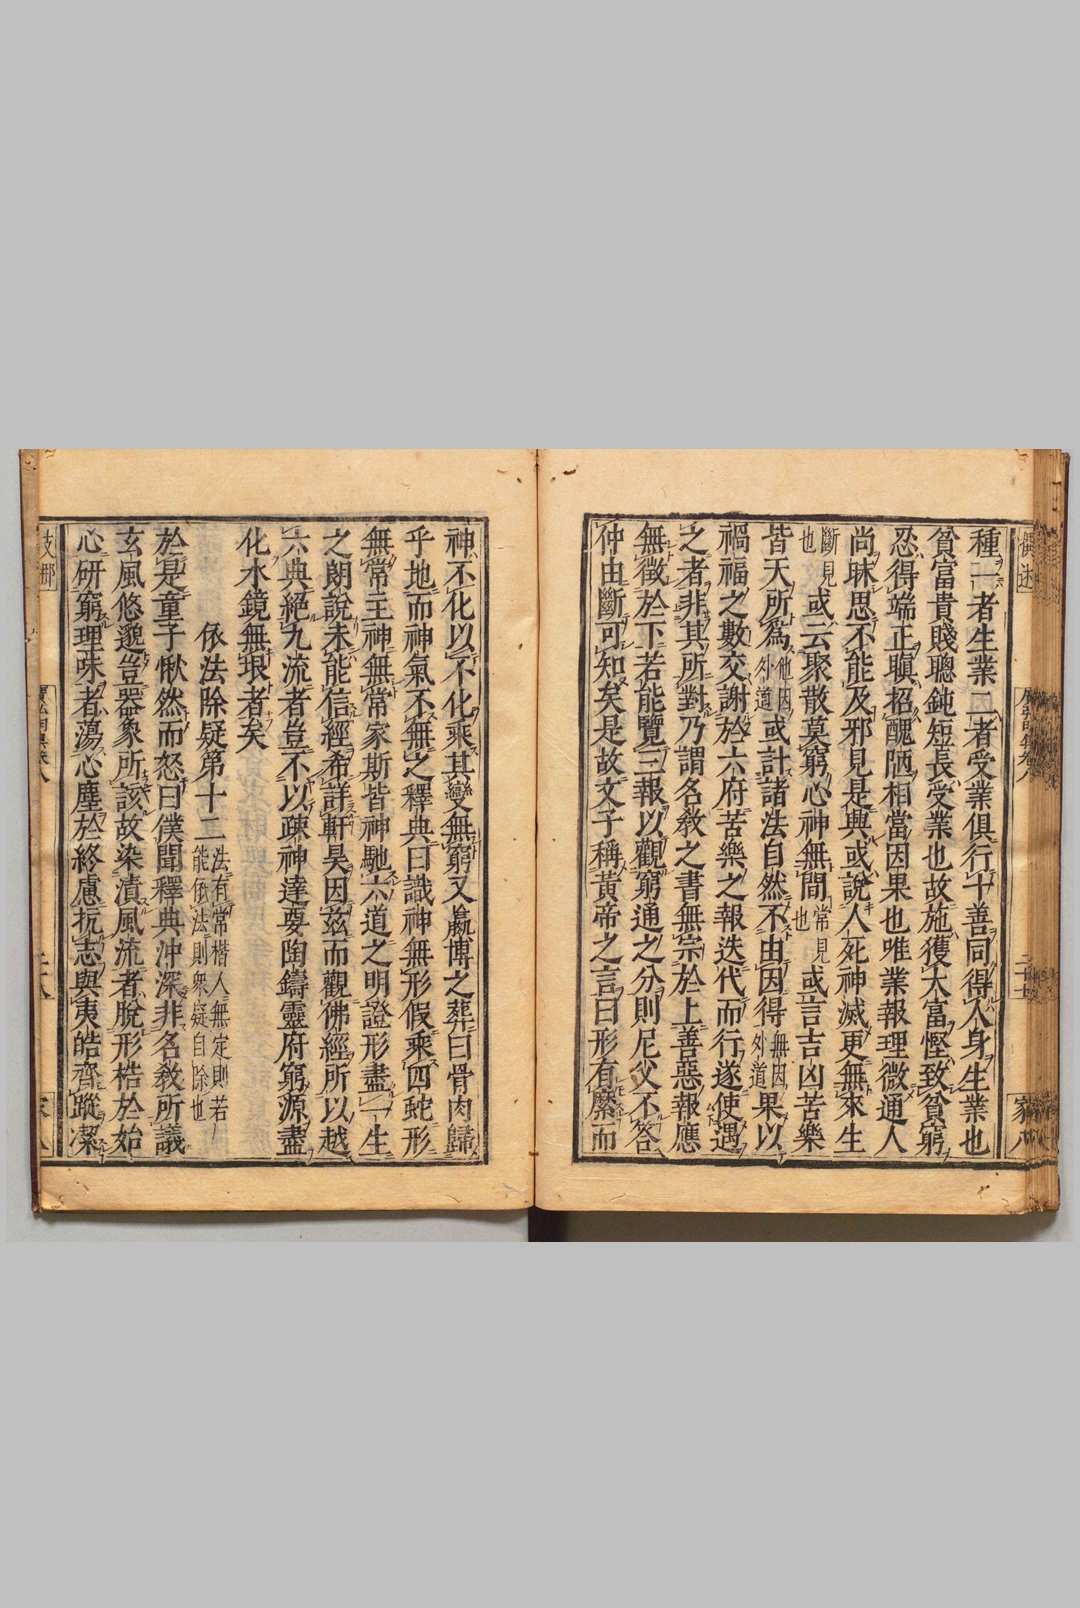 種一者生業二者受業俱行十善同得人身生業也
貧富貴賤聰鈍短長受業也故施獲大富慳致貧窮
忍得端正瞋招醜陋相當因果也唯業報理微通人
尚昧思不能及邪見是興或說人死神滅更無來生
斷見也或云聚散莫窮心神無間常見也或言吉凶苦樂
皆天所爲他因外道或計諸法自然不由因得無因外道果以
禍福之數交謝於六府苦樂之報迭代而行遂使遇
之者非其所對乃謂名教之書無宗於上善惡報應
無徵於下若能覽三報以觀窮通之分則尼父不答
仲由斷可知矣是故文子稱黃帝之言曰形有縻而
神不化以不化乘其變無窮又嬴博之葬曰骨肉歸
乎地而神氣不無之釋典曰識神無形假乘四蛇形
無常主神無常家斯皆神馳六道之明證形盡一生
之朗說未能信經希詳軒昊因茲而觀佛經所以越
六典絕九流者豈不以疎神達要陶鑄靈府窮源盡
化水鏡無垠者矣
依法除疑第十二法有常楷人無定則若能依法則衆疑自除也
於是童子愀然而怒曰僕聞釋典沖深非名教所議
玄風悠邈豈器象所該故染漬風流者脫形桎於始
心研窮理味者蕩心塵於終慮抗志與夷皓齊蹤潔